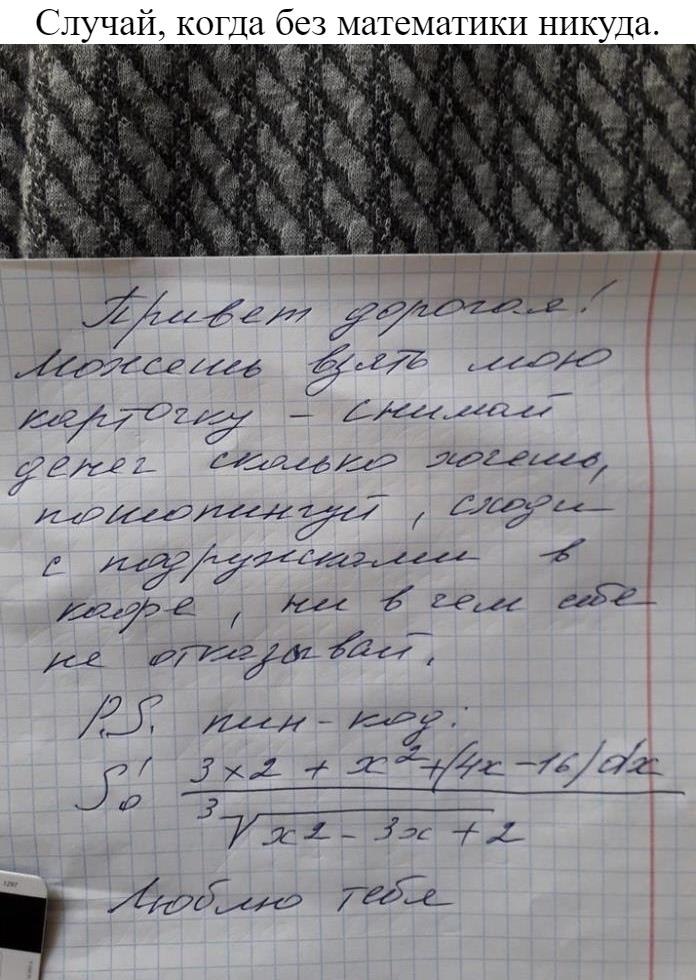 Случай, когда без математики никуда.
Привет дорогая!
Можешь взять мою
карточку – снимай
денег сколько хочешь,
пошопингуй, сходи
с подружками в
кафе, ни в чем себе
не отказывай.
P.S. пин-код:
∫₀¹ 3x2 + x² + (4x - 16) dx
³√x2 - 3x + 2
Люблю тебя